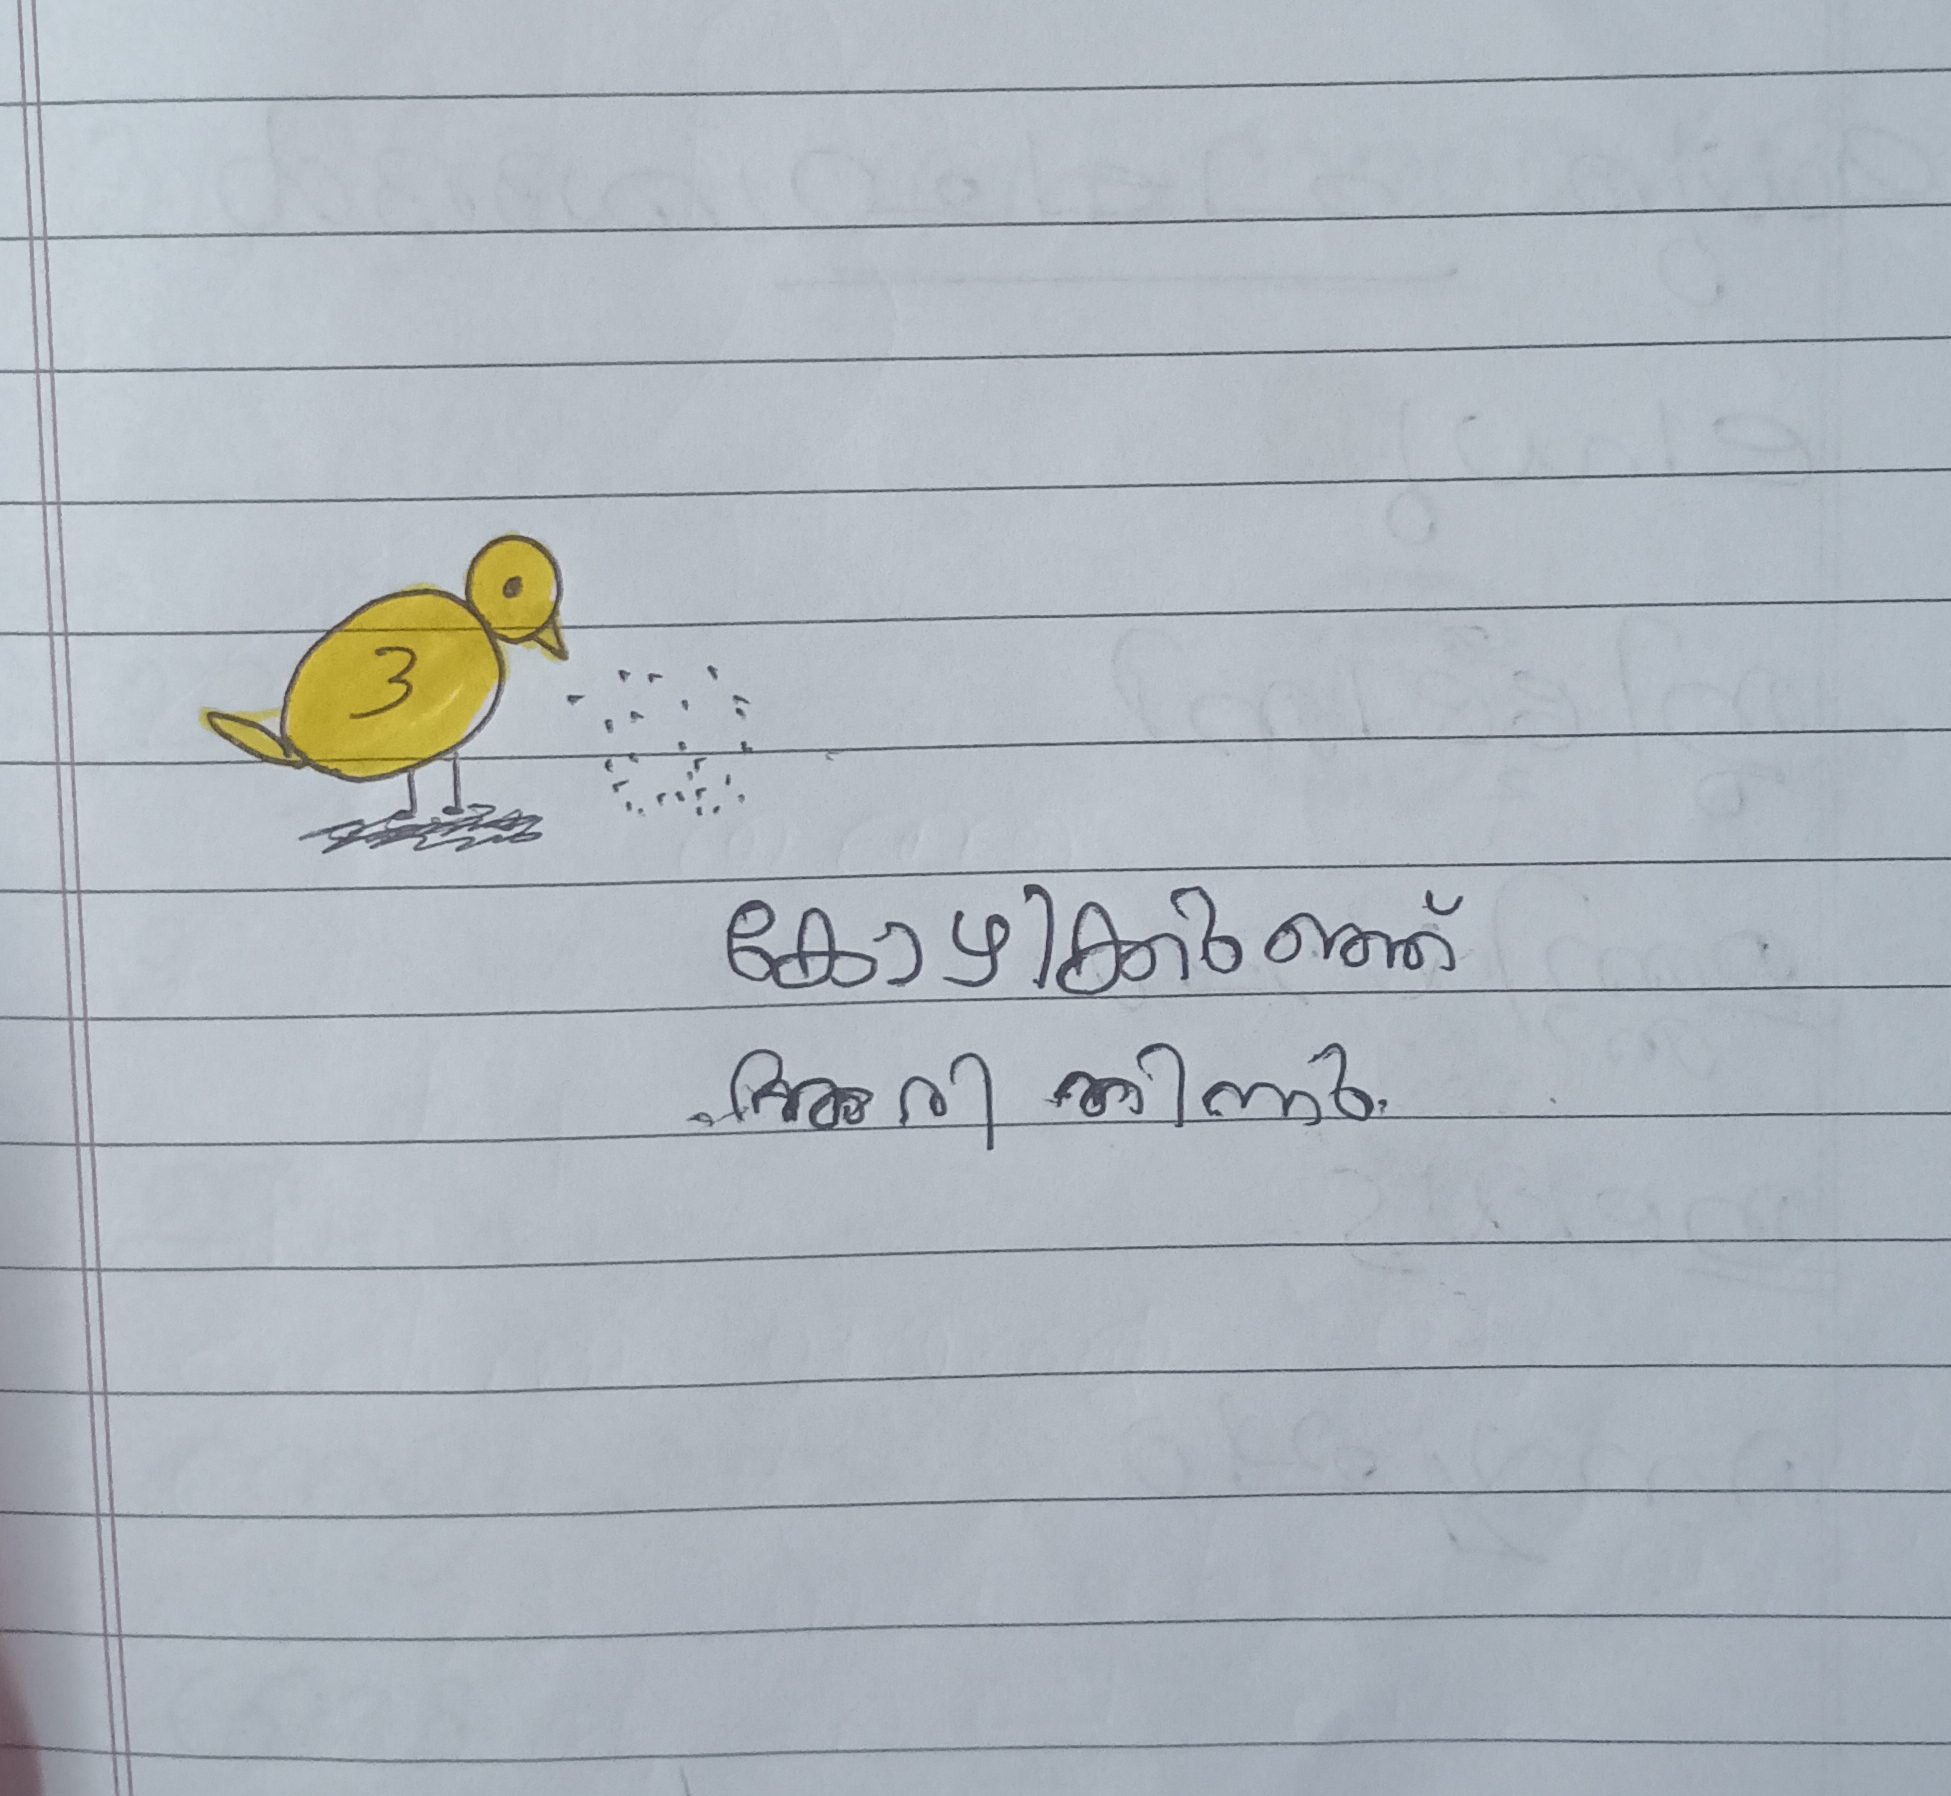 കോഴിക്കുഞ്ഞ്
അരി തിന്നു.